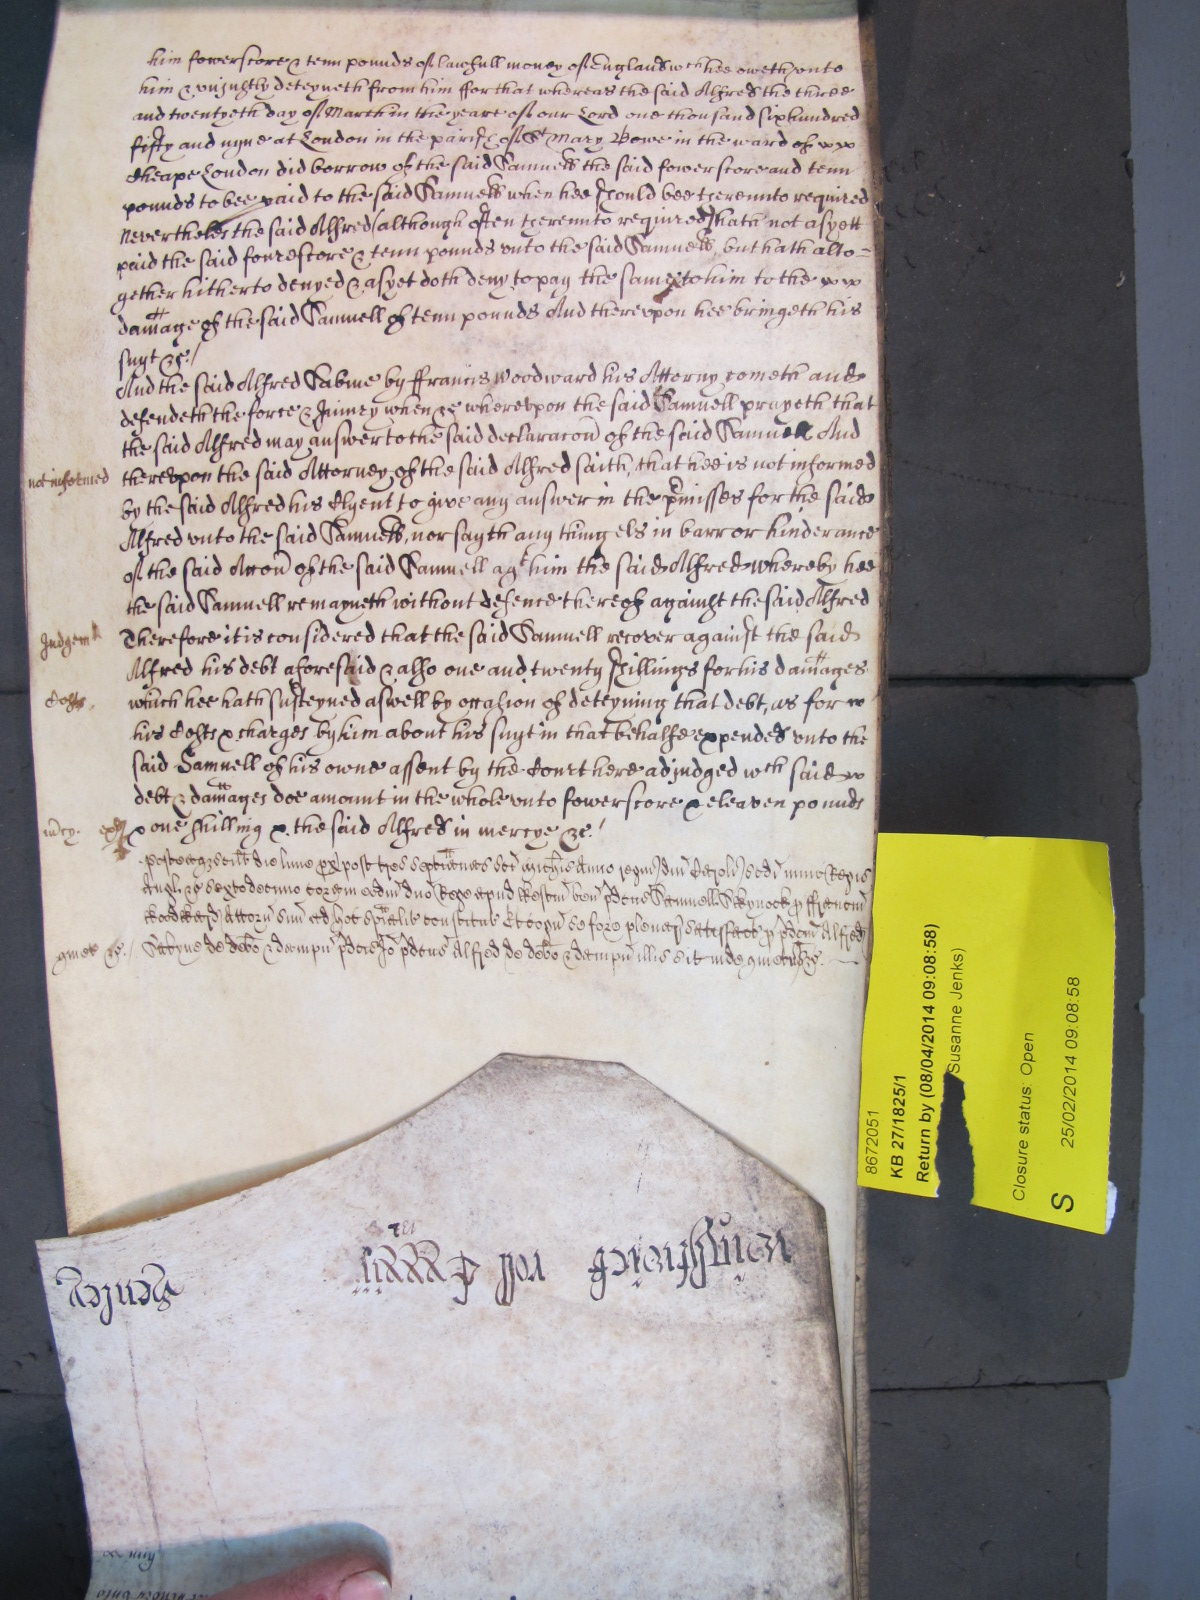 him fowerscore & tenn pounds of lawfull money of England wch hee oweth vnto
him & vniustly deteyneth from him ffor that whereas the said Alfred the three
and twentyeth day of March in the yeare of our Lord one thousand six hundred
fifty and nyne at London in the parish of St Mary Bowe in the ward of
Cheape London did borrow of the said Samuell the said fowerscore and tenn
pounds to bee paid to the said Samuell when hee should bee therevnto required
Neverthelesse the said Alfred (although often therevnto required) hath not as yett
paid the said fourescore & tenn pounds vnto the said Samuell, but hath alto=
gether hitherto denyed & as yet doth deny to pay the same to him to the
damage of the said Samuell of tenn pounds And therevpon hee bringeth his
suyt &c /
And the said Alfred Sabine by ffrancis Woodward his Attorny cometh and
defendeth the force & Iniury when &c wherevpon the said Samuell prayeth that
the said Alfred may answer to the said declaracon of the said Samuell And
not informed therevpon the said Attorney of the said Alfred saith, that hee is not informed
by the said Alfred his Clyent to give any answer in the pmisses for the said
Alfred vnto the said Samuell, nor sayth any thing els in barr or hinderance
of the said Accon of the said Samuell agt him the said Alfred whereby hee
the said Samuell remayneth without defence thereof against the said Alfred
Judgemt Therefore it is considered that the said Samuell recover against the said
Alfred his debt aforesaid & also one and twenty shillings for his damages
Costs which hee hath susteyned aswell by occasion of deteyning that debt, as for
his Costs & charges by him about his suyt in that behalfe expended vnto the
said Samuell of his owne assent by the Court here adjudged wch said
debt & damages doe amount in the whole vnto fowerscore & eleaven pounds
mcy. & one shilling & the said Alfred in mercye &c /
Postea scilt die lune px post tres septimanas sci Michis Anno regni dni Caroli scdi nunc Regis
Angl &c sexto decimo coram eodm dno Rege apud Westm ven pdcus Samuell p ffrancm
Woodward Attorn suu
Sabyne de debo & dampn pdcis Io pdcus Alfred de debo & dampn illis sit inde quietus &c.
quiet &c /
8672051
KB 27/1825/1
Return by (08/04/2014 09:08:58)
Susanne Jenks)
Closure status: Open
S
25/02/2014 09:08:58